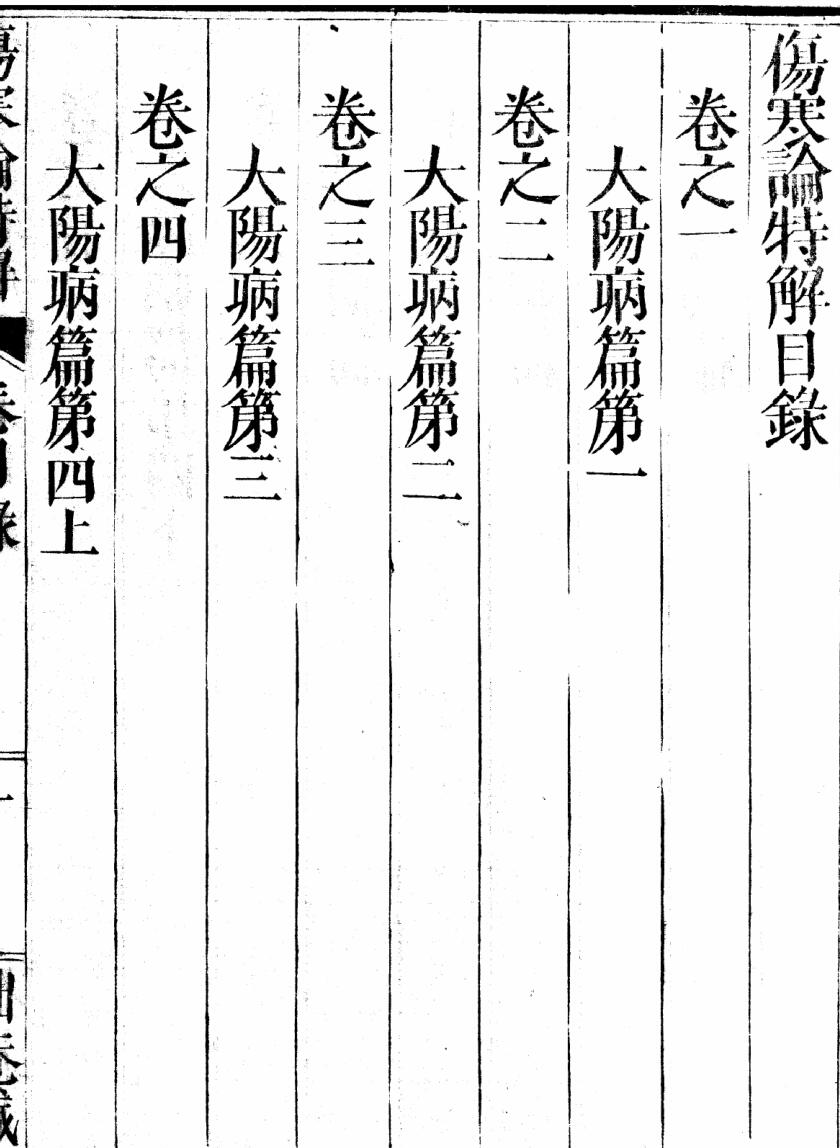 傷寒論特解目錄
卷之一
大陽病篇第一
卷之二
大陽病篇第二
卷之三
大陽病篇第三
卷之四
大陽病篇第四上
傷寒論特解
卷目錄
一